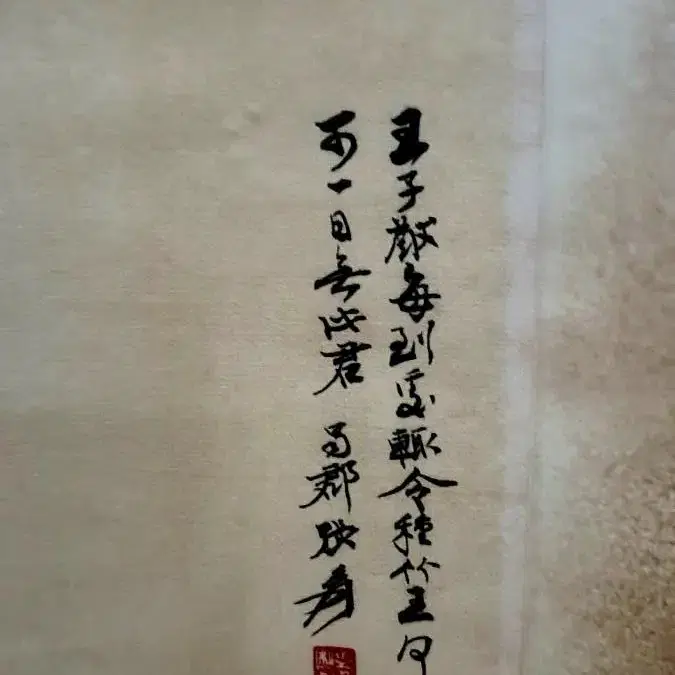 王子猷每到處輒令種竹王何
可一日無此君 蜀郡張爰